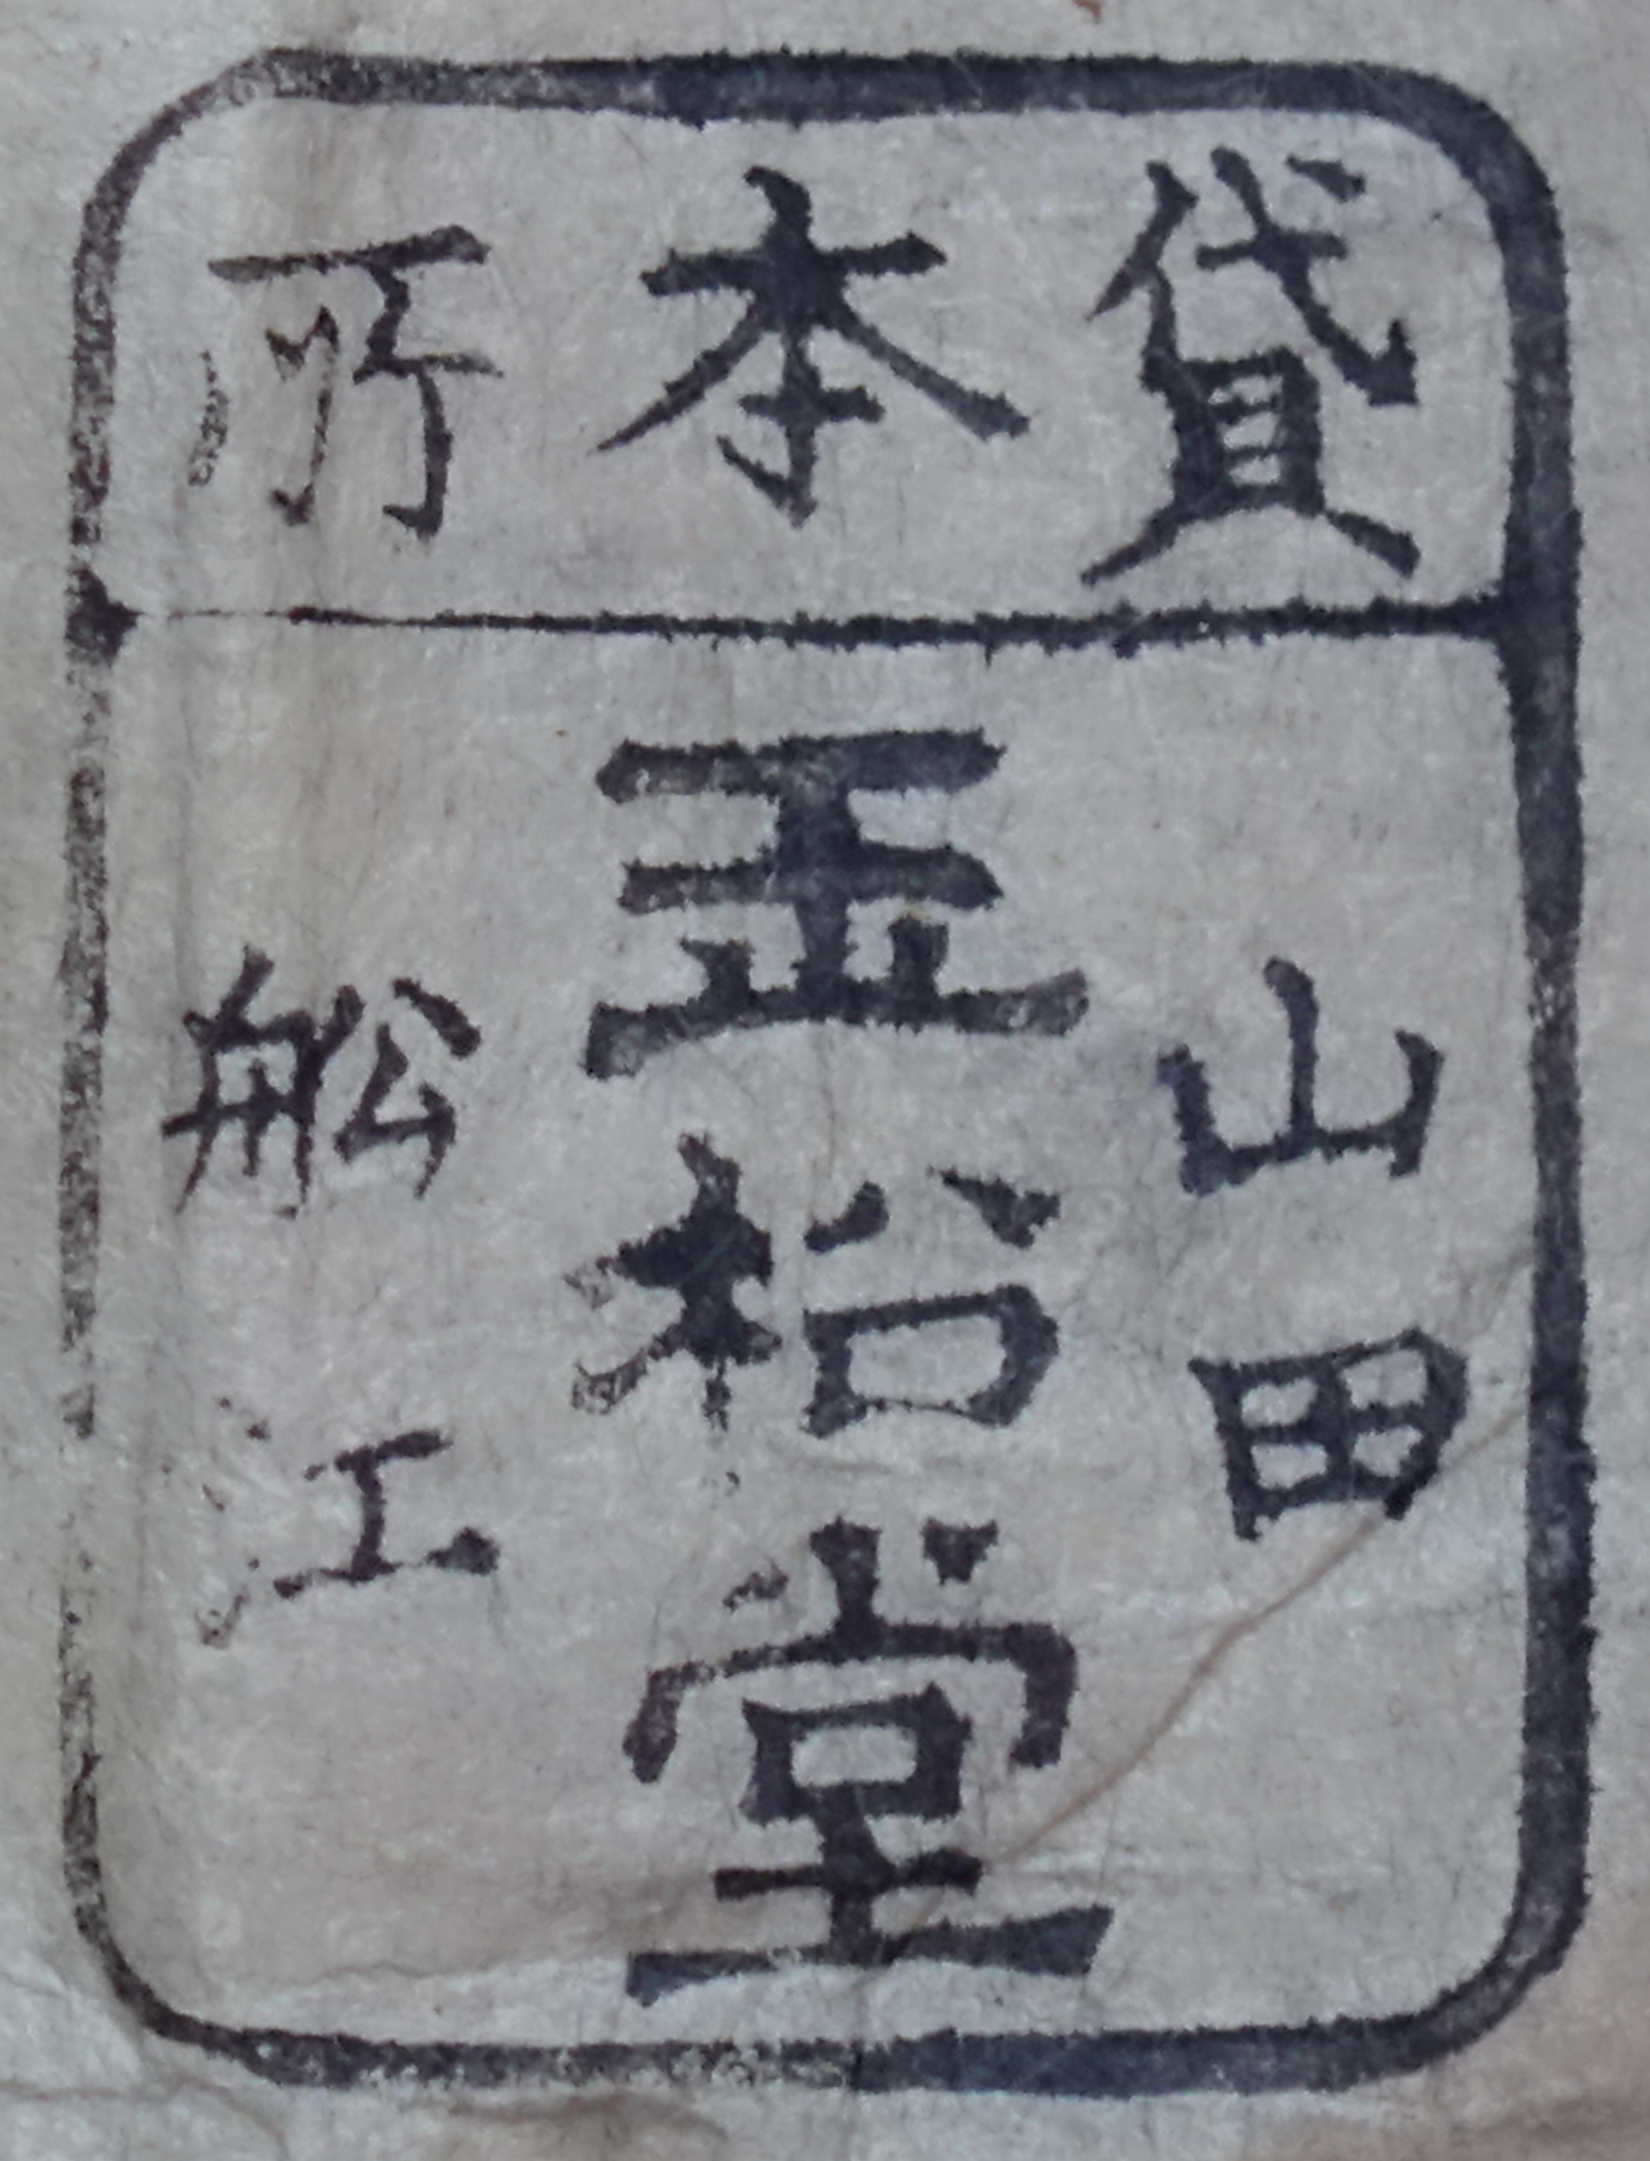 貸本所
山田
玉柗堂
舩江